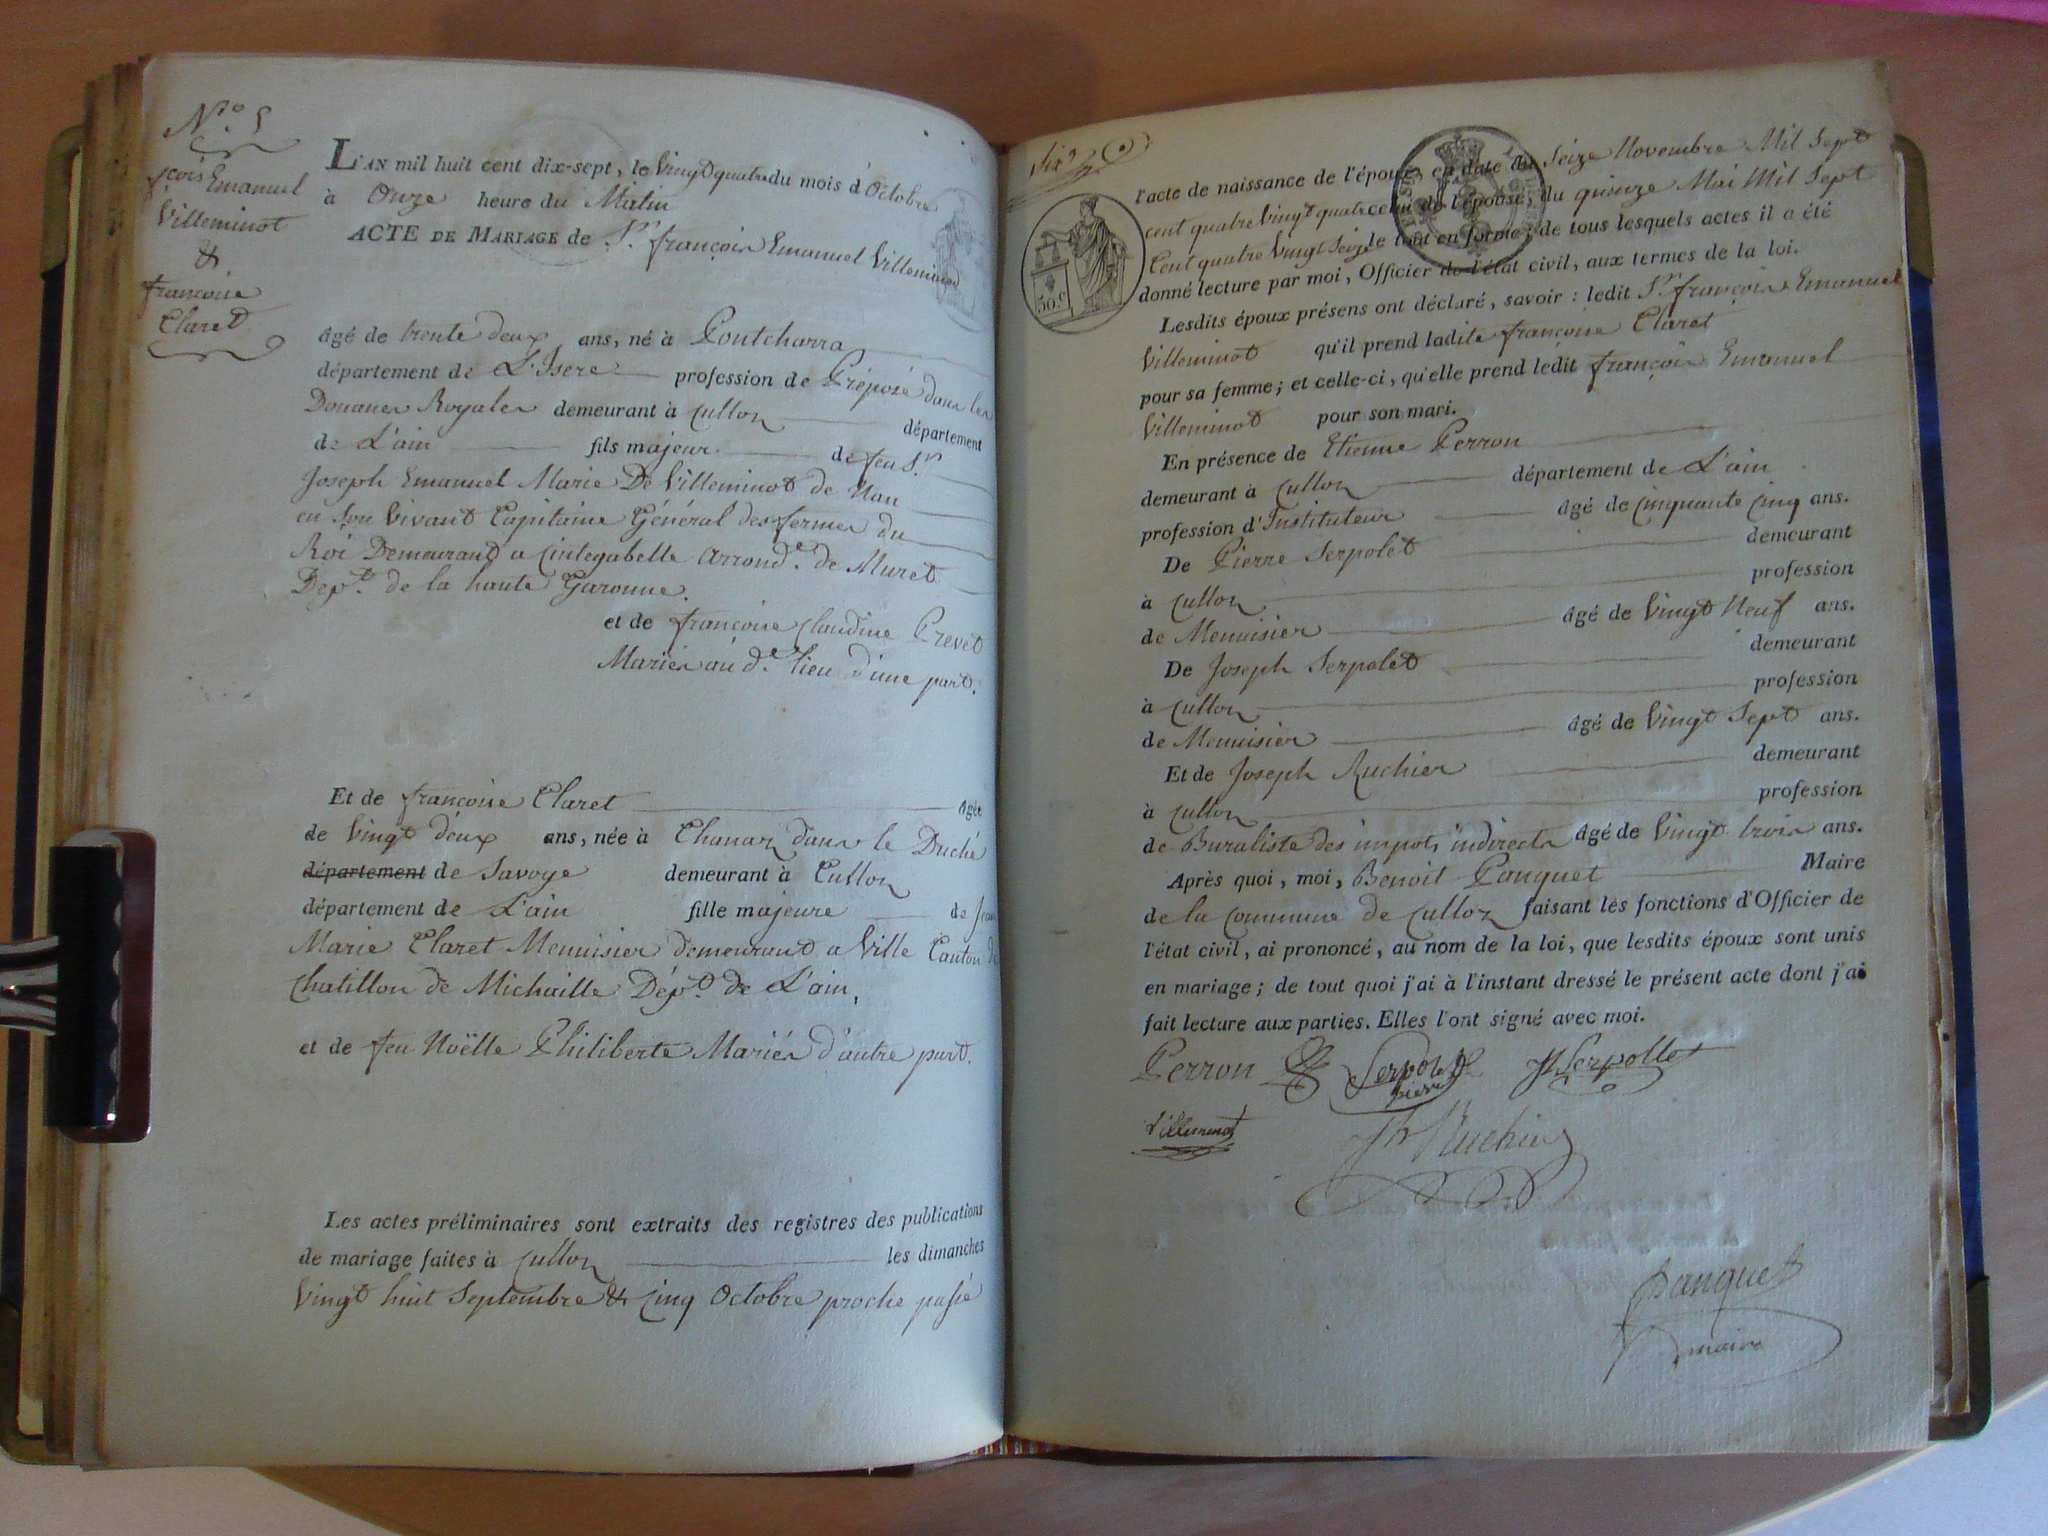 Nro 5
fçois Emanuel
Villeminot
&
françoise
Claret
L'AN mil huit cent dix-sept, le Vingt quatre du mois d'Octobre
à Onze heure du Matin
ACTE DE MARIAGE de Sr. françois Emanuel Villeminot
âgé de trente deux ans, né à Pontcharra
département de L'Isere profession de Préposé dans les
Douanes Royales demeurant à Culloz département
de L'ain fils majeur de feu Sr.
Joseph Emanuel Marie De Villeminot de Nan
en Son Vivant Capitaine Général des fermes du
Roi Demeurant a Cintegabelle arrond.e de Muret
Dept. de la haute Garonne.
et de françoise Claudine Prevet
Mariés au d.e lieu d'une part.
Et de françoise Claret âgée
de Vingt deux ans, née à Chanaz dans le Duché
département de Savoye demeurant à Culloz
département de L'ain fille majeure de Jean
Marie Claret Menuisier demeurant a Ville Canton de
Chatillon de Michaille Dépt. de L'ain,
et de feu Noëlle Philiberte Mariés d'autre part.
Les actes préliminaires sont extraits des registres des publications
de mariage faites à Culloz les dimanches
Vingt huit Septembre & Cinq Octobre proche passé
Six
50.c
l'acte de naissance de l'époux, en date du Seize Novembre Mil Sept
cent quatre Vingt quatre celui de l'épouse, du quinze Mai Mil Sept
Cent quatre Vingt Seize le tout en forme; de tous lesquels actes il a été
donné lecture par moi, Officier de l'état civil, aux termes de la loi.
Lesdits époux présens ont déclaré, savoir : ledit Sr. françois Emanuel
Villeminot qu'il prend ladite françoise Claret
pour sa femme; et celle-ci, qu'elle prend ledit françois Emanuel
Villeminot pour son mari.
En présence de Etienne Perron
demeurant à Culloz département de L'ain
profession d'Instituteur âgé de Cinquante Cinq ans.
De Pierre Serpolet demeurant
à Culloz profession
de Menuisier âgé de Vingt Neuf ans.
De Joseph Serpolet demeurant
à Culloz profession
de Menuisier âgé de Vingt Sept ans.
Et de Joseph Ruchier demeurant
à Culloz profession
de Buraliste des impots indirects âgé de Vingt trois ans.
Après quoi, moi, Benoit Panquet Maire
de la Commune de Culloz faisant les fonctions d'Officier de
l'état civil, ai prononcé, au nom de la loi, que lesdits époux sont unis
en mariage; de tout quoi j'ai à l'instant dressé le présent acte dont j'ai
fait lecture aux parties. Elles l'ont signé avec moi.
Perron Serpolet pierre Jh Serpollet
Villeminot Jh Ruchier
Panquet
maire